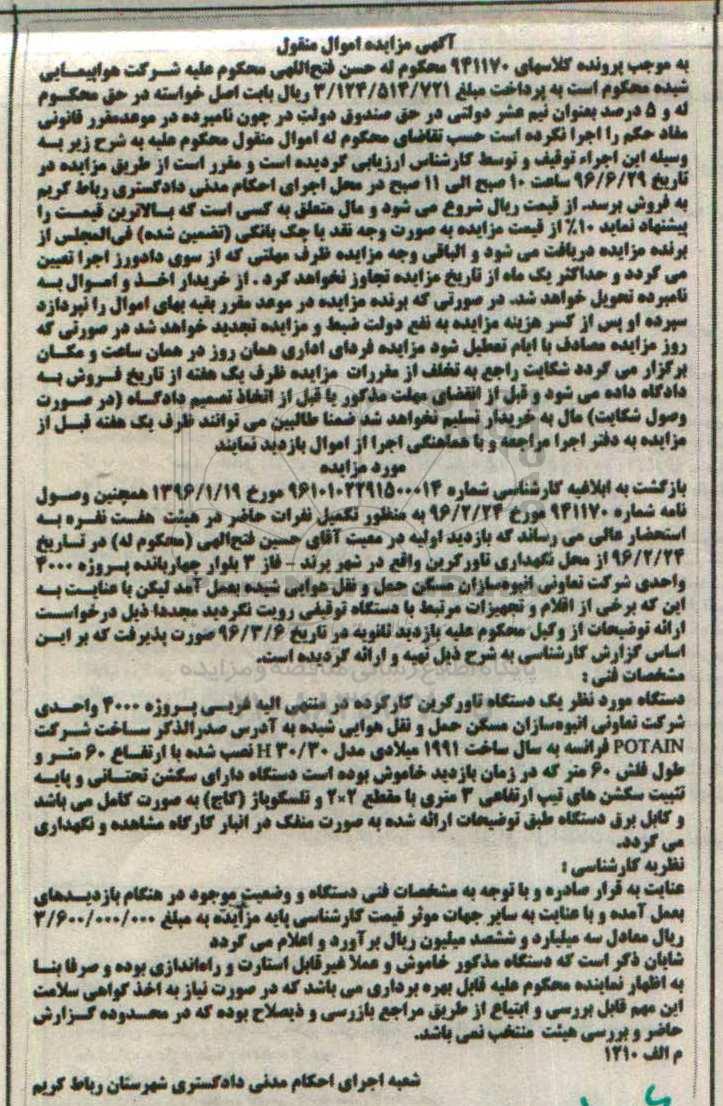 آگهی مزایده اموال منقول
به موجب پرونده کلاسهای ۹۴۱۱۷۰ محکوم له حسن فتح‌اللهی محکوم علیه شرکت هواپیمایی
شیده محکوم است به پرداخت مبلغ ۳/۱۲۴/۵۱۴/۷۲۱ ریال بابت اصل خواسته در حق محکوم
له و ۵ درصد بعنوان نیم عشر دولتی در حق صندوق دولت در چون نامبرده در موعدمقرر قانونی
مفاد حکم را اجرا نکرده است حسب تقاضای محکوم له اموال منقول محکوم علیه به شرح زیر به
وسیله این اجراء توقیف و توسط کارشناس ارزیابی گردیده است و مقرر است از طریق مزایده در
تاریخ ۹۶/۶/۲۹ ساعت ۱۰ صبح الی ۱۱ صبح در محل اجرای احکام مدنی دادگستری رباط کریم
به فروش برسد. از قیمت ریال شروع می شود و مال متعلق به کسی است که بالاترین قیمت را
پیشنهاد نماید ۱۰٪ از قیمت مزایده به صورت وجه نقد یا چک بانکی (تضمین شده) فی‌المجلس از
برنده مزایده دریافت می شود و الباقی وجه مزایده ظرف مهلتی که از سوی دادورز اجرا تعیین
می گردد و حداکثر یک ماه از تاریخ مزایده تجاوز نخواهد کرد. از خریدار اخذ و اموال به
نامبرده تحویل خواهد شد. در صورتی که برنده مزایده در موعد مقرر بقیه بهای اموال را نپردازد
سپرده او پس از کسر هزینه مزایده به نفع دولت ضبط و مزایده تجدید خواهد شد در صورتی که
روز مزایده مصادف با ایام تعطیل شود مزایده فردای اداری همان روز در همان ساعت و مکان
برگزار می گردد شکایت راجع به تخلف از مقررات مزایده ظرف یک هفته از تاریخ فروش به
دادگاه داده می شود و قبل از انقضای مهلت مذکور یا قبل از اتخاذ تصمیم دادگاه (در صورت
وصول شکایت) مال به خریدار تسلیم نخواهد شد ضمنا طالبین می توانند ظرف یک هفته قبل از
مزایده به دفتر اجرا مراجعه و با هماهنگی اجرا از اموال بازدید نمایند
مورد مزایده
بازگشت به ابلاغیه کارشناسی شماره ۹۶۱۰۱۰۲۲۹۱۵۰۰۰۱۴ مورخ ۱۳۹۶/۱/۱۹ همچنین وصول
نامه شماره ۹۴۱۱۷۰ مورخ ۹۶/۲/۲۴ به منظور تکمیل نفرات حاضر در هیئت هفت نفره به
استحضار عالی می رساند که بازدید اولیه در معیت آقای حسین فتح‌الهی (محکوم له) در تاریخ
۹۶/۲/۲۴ از محل نگهداری تاورکرین واقع در شهر پرند - فاز ۳ بلوار چهارباندہ پروژه ۴۰۰۰
واحدی شرکت تعاونی انبوه‌سازان مسکن حمل و نقل هوایی شیده بعمل آمد لیکن با عنایت به
این که برخی از اقلام و تجهیزات مرتبط با دستگاه توقیفی رویت نگردید مجددا ذیل درخواست
ارائه توضیحات از وکیل محکوم علیه بازدید ثانویه در تاریخ ۹۶/۳/۶ صورت پذیرفت که بر این
اساس گزارش کارشناسی به شرح ذیل تهیه و ارائه گردیده است.
مشخصات فنی :
دستگاه مورد نظر یک دستگاه تاورکرین کارکرده در منتهی الیه غربی پروژه ۴۰۰۰ واحدی
شرکت تعاونی انبوه‌سازان مسکن حمل و نقل هوایی شیده به آدرس صدرالذکر ساخت شرکت
POTAIN فرانسه به سال ساخت ۱۹۹۱ میلادی مدل H ۳۰/۳۰ نصب شده با ارتفاع ۶۰ متر و
طول فلش ۶۰ متر که در زمان بازدید خاموش بوده است دستگاه دارای سکشن تحتانی و پایه
تثبیت سکشن های تیپ ارتفاعی ۳ متری با مقطع ۲×۲ و تلسکوپاژ (کاج) به صورت کامل می باشد
و کابل برق دستگاه طبق توضیحات ارائه شده به صورت منفک در انبار کارگاه مشاهده و نگهداری
می گردد.
نظریه کارشناسی :
عنایت به قرار صادره و با توجه به مشخصات فنی دستگاه و وضعیت موجود در هنگام بازدیدهای
بعمل آمده و با عنایت به سایر جهات موثر قیمت کارشناسی پایه مزایده به مبلغ ۳/۶۰۰/۰۰۰/۰۰۰
ریال معادل سه میلیارد و ششصد میلیون ریال برآورد و اعلام می گردد
شایان ذکر است که دستگاه مذکور خاموش و عملا غیرقابل استارت و راه‌اندازی بوده و صرفا بنا
به اظهار نماینده محکوم علیه قابل بهره برداری می باشد که در صورت نیاز به اخذ گواهی سلامت
این مهم قابل بررسی و ابتیاع از طریق مراجع بازرسی و ذیصلاح بوده که در محدوده گزارش
حاضر و بررسی هیئت منتخب نمی باشد.
م الف ۱۲۱۰
شعبه اجرای احکام مدنی دادگستری شهرستان رباط کریم